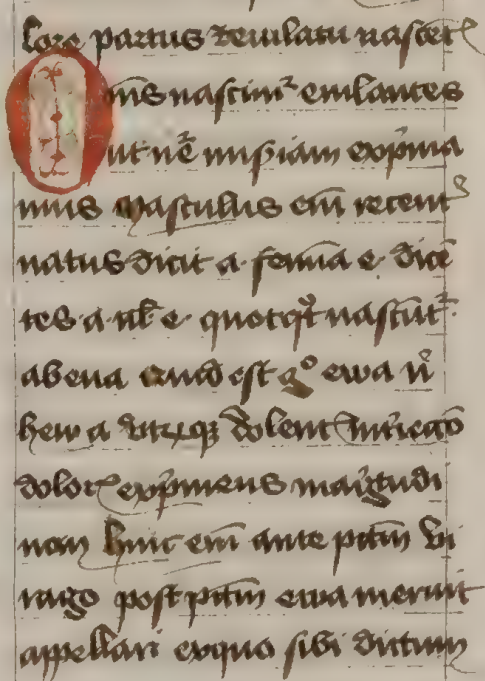 lore partus & eiulatu nascet
Oms nascim̄ eiulantes
ut nr̄e miseriam exprima
mus Masculus em̄ recent
natus dicit a femīa e dicē
tes a vl e quotqt nascūtr
ab eua quid est go ewa n̄
hew a utrūqꝫ dolent Interiectio
dolor exprimens magitudi
nem hinc em̄ ante pctm vi
rago post pctm ewa meruit
appellari ex quo sibi dictum